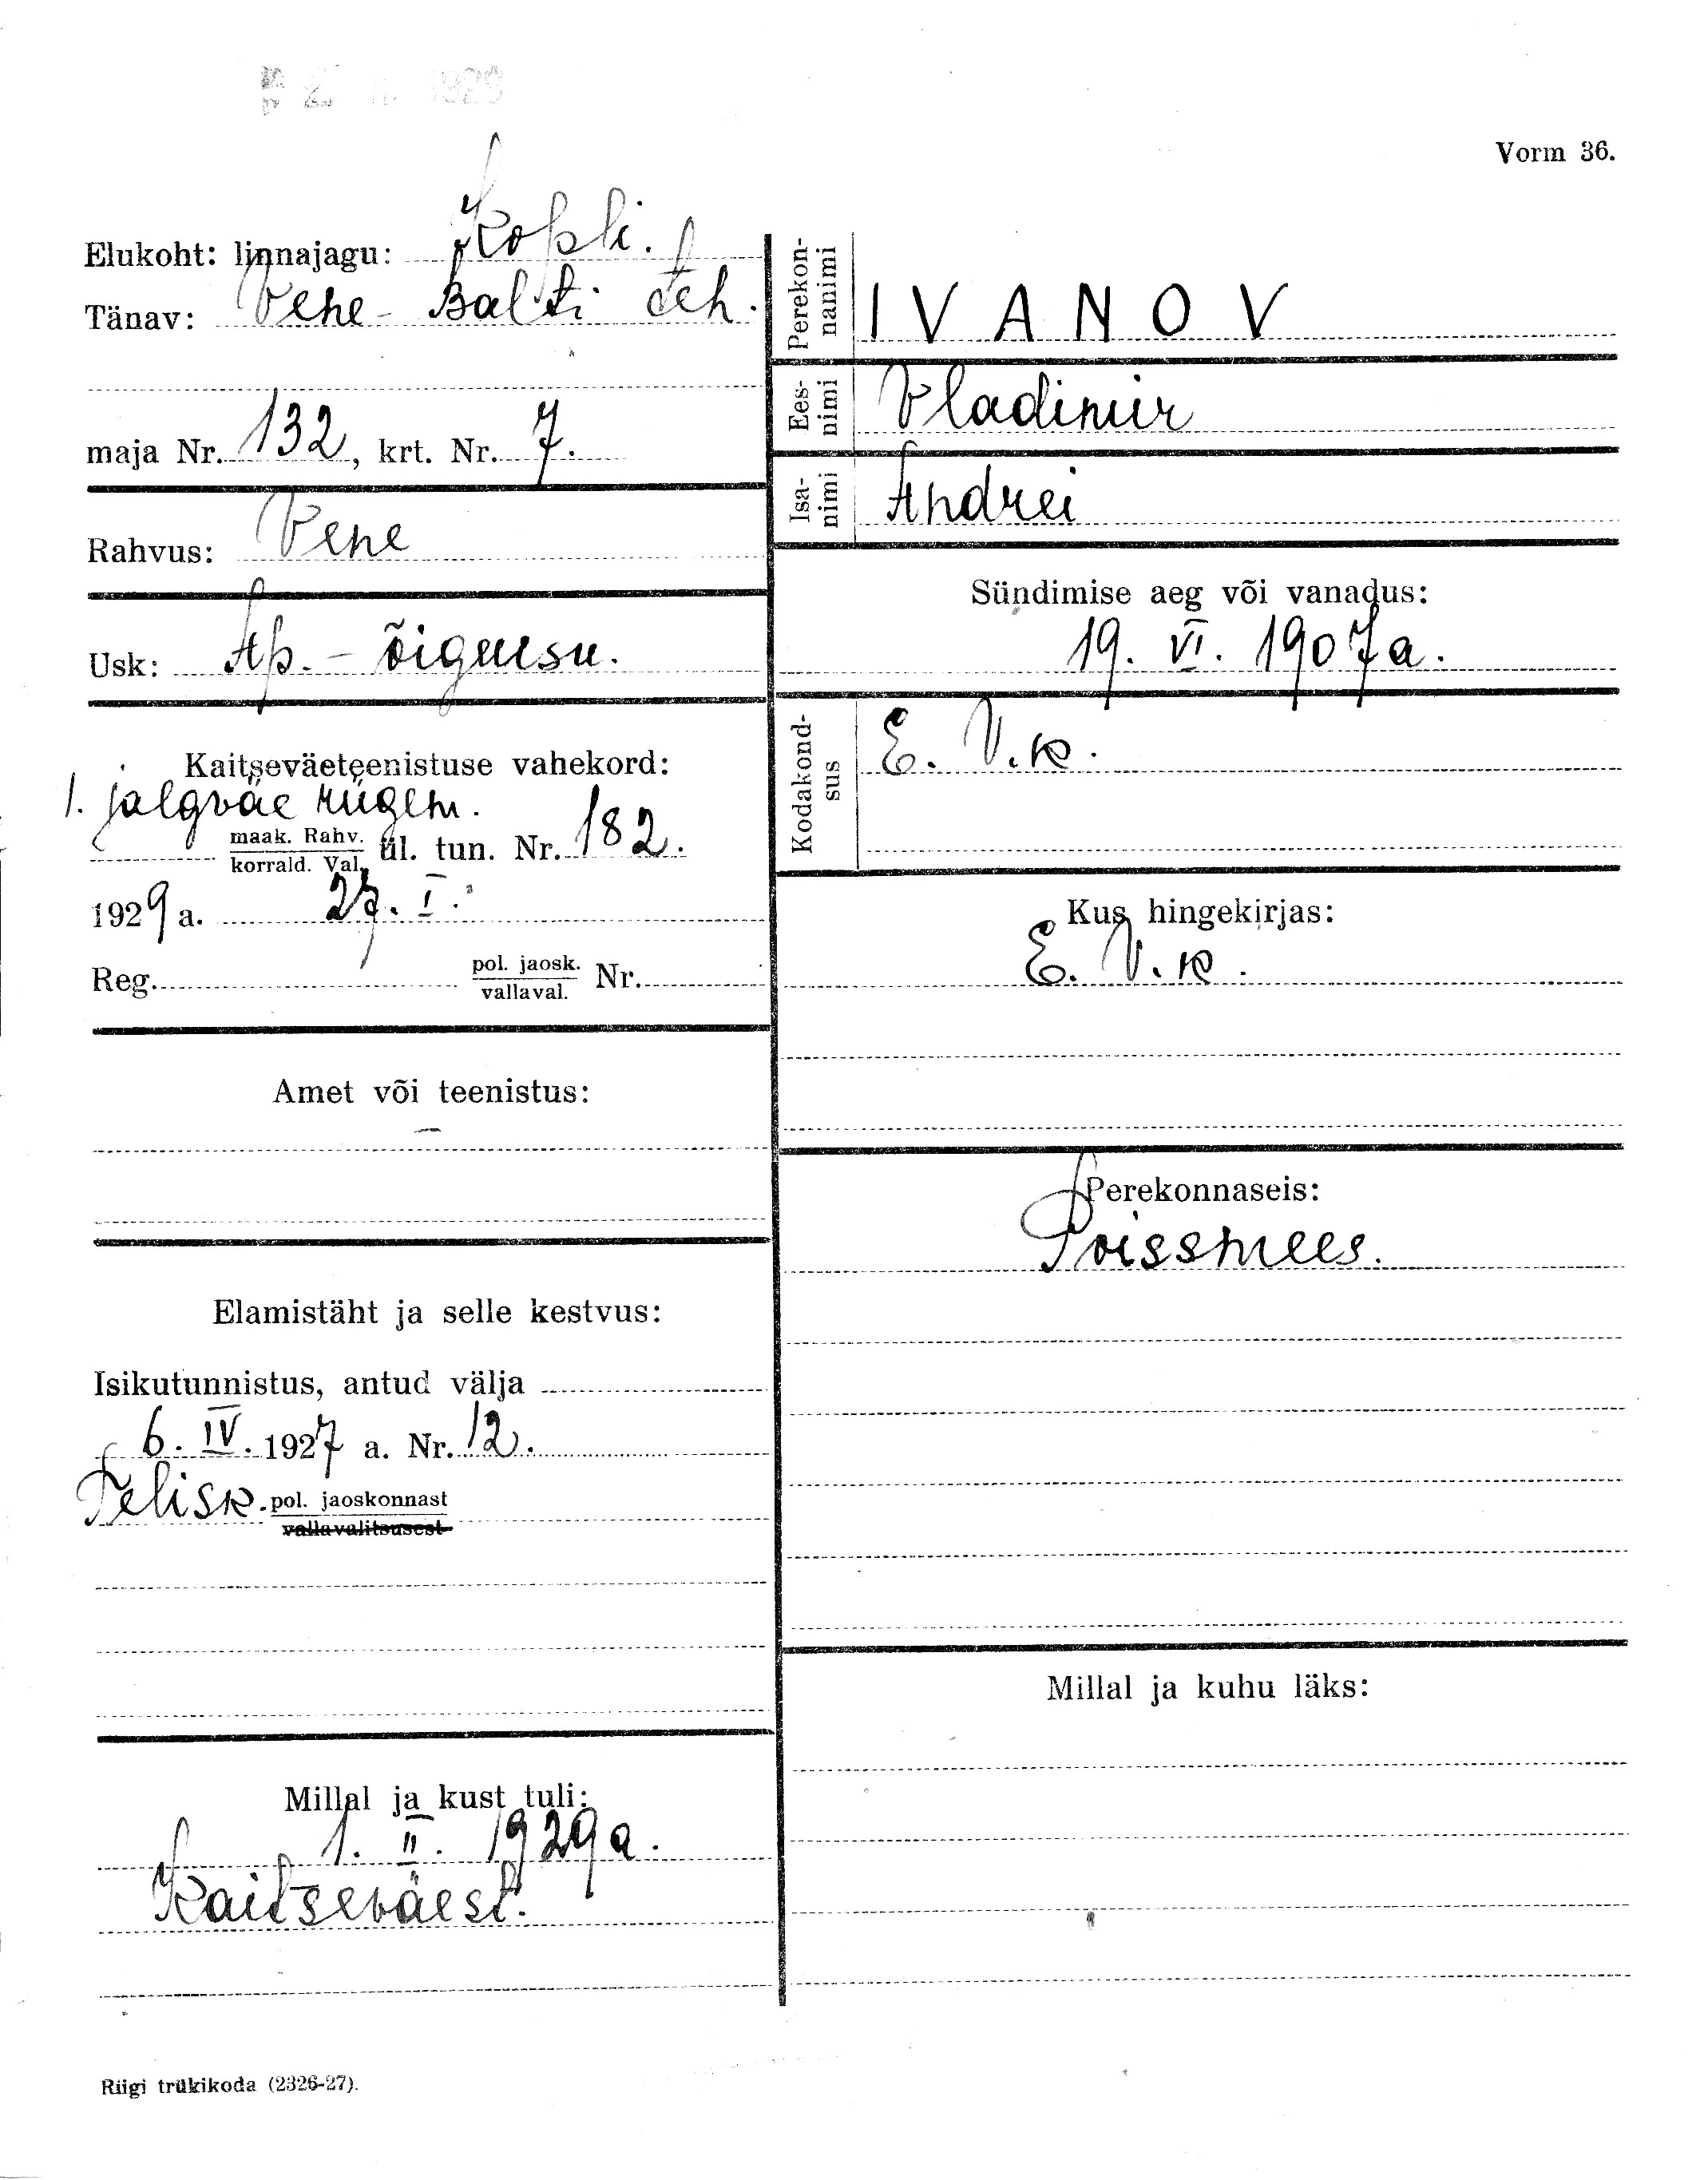 1929
Vorm 36.
Elukoht: linnajagu: Kopli.
Tänav: Vene-Balti teh.
maja Nr. 132, krt. Nr. 7.
Rahvus: Vene
Usk: Ap.-õigeusu.
Kaitseväeteenistuse vahekord:
1. jalgväe rügem.
maak. Rahv.
korrald. Val. ül. tun. Nr. 182.
1929 a. 27. I.
Reg. pol. jaosk. Nr.
vallaval.
Amet või teenistus:
—
Elamistäht ja selle kestvus:
Isikutunnistus, antud välja
6. IV. 1927 a. Nr. 12.
Telisk. pol. jaoskonnast
vallavalitsusest
Millal ja kust tuli:
1. II. 1929 a.
Kaitseväest.
Perekon-
nanimi
IVANOV
Ees-
nimi
Vladimir
Isa-
nimi
Andrei
Sündimise aeg või vanadus:
19. VI. 1907 a.
Kodakond-
sus
E. V. k.
Kus hingekirjas:
E. V. k.
Perekonnaseis:
Poissmees.
Millal ja kuhu läks:
Riigi trükikoda (2326-27).